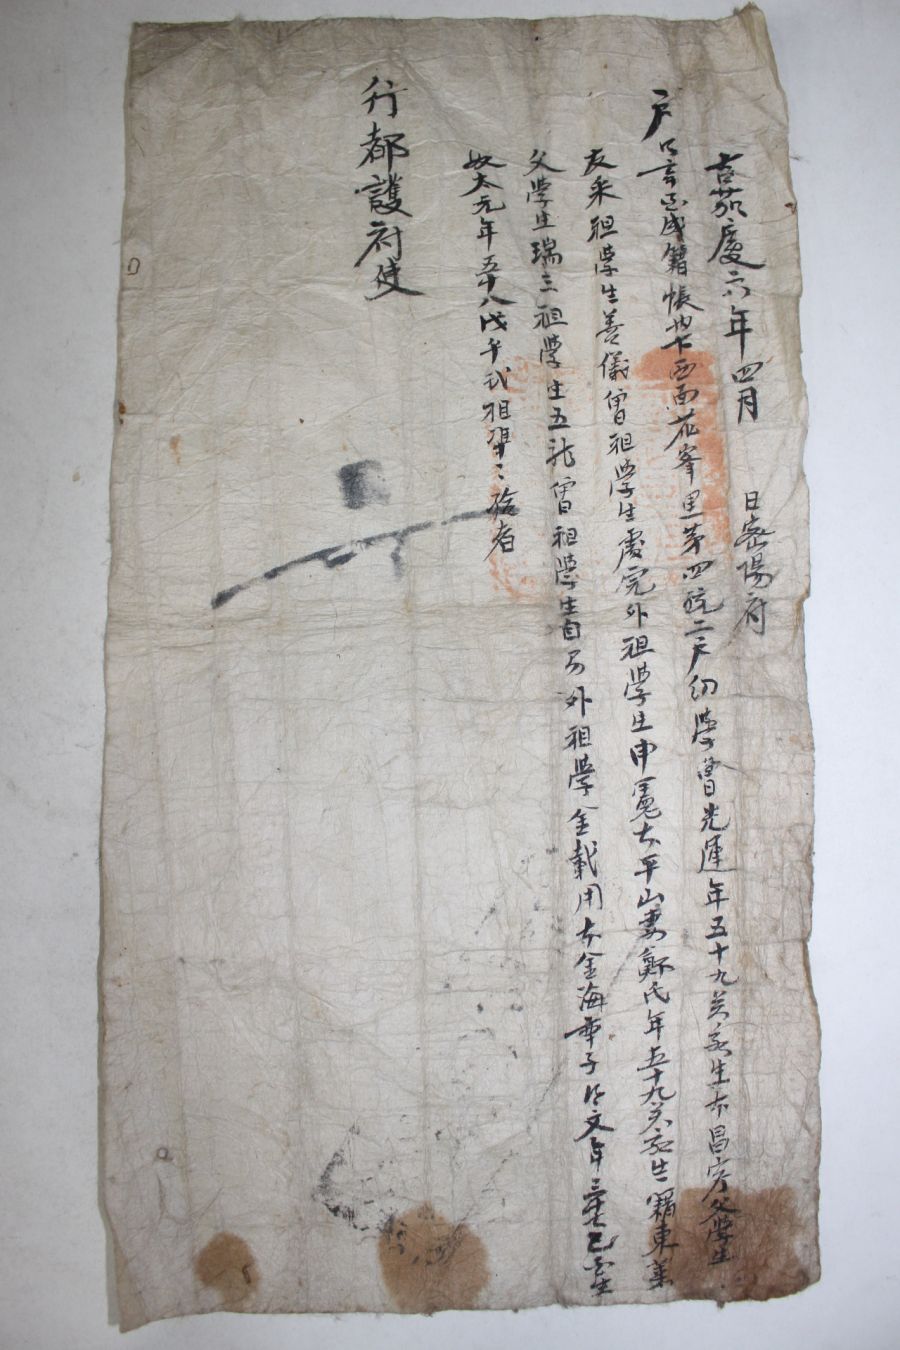 嘉慶六年四月 日密陽府
戶口考己酉成籍帳內下西面花峯里第四統二戶幼學曺光運年五十九癸亥生本昌寧父學生
友采祖學生善儀曾祖學生慶完外祖學生申 本平山妻鄭氏年五十九癸亥生籍東萊
父學生瑞三祖學生五龍曾祖學生自 外祖學 金載用本金海率子 文年 己 生
奴太元年五十八戊午 者
行都護府使